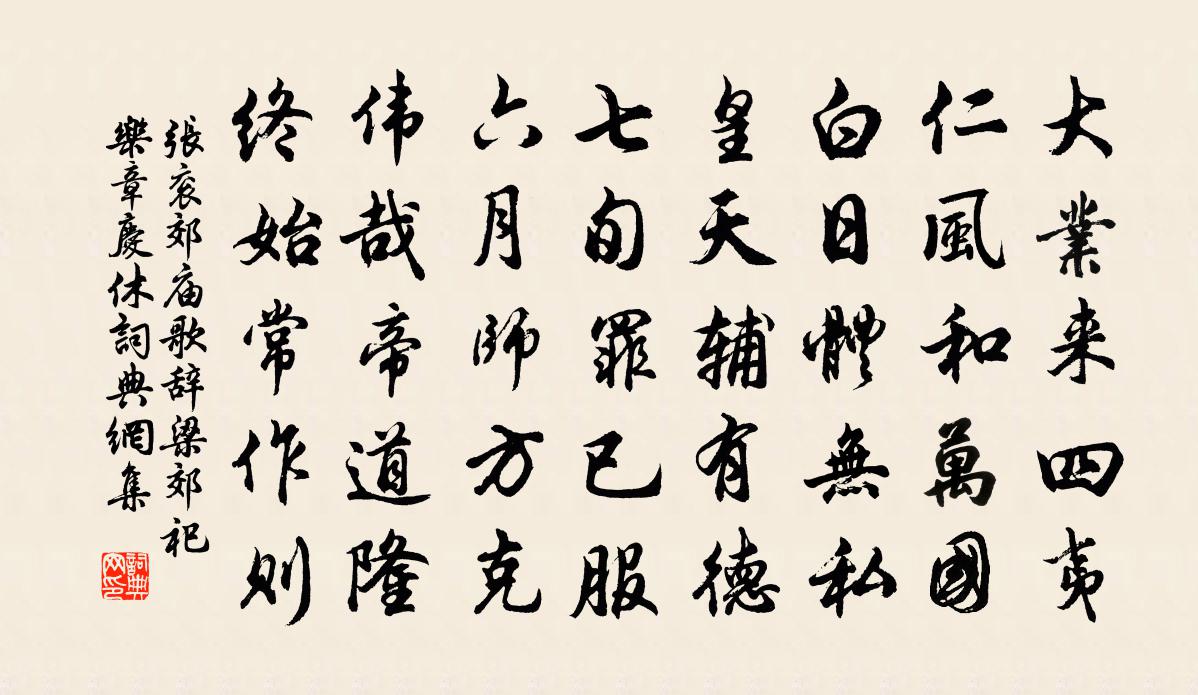 大業来四夷
仁風和萬國
白日體無私
皇天辅有德
七旬罪已服
六月師方克
伟哉帝道隆
终始常作则
張衮郊庙歌辞梁郊祀
樂章慶休詞典網集
詞典网印